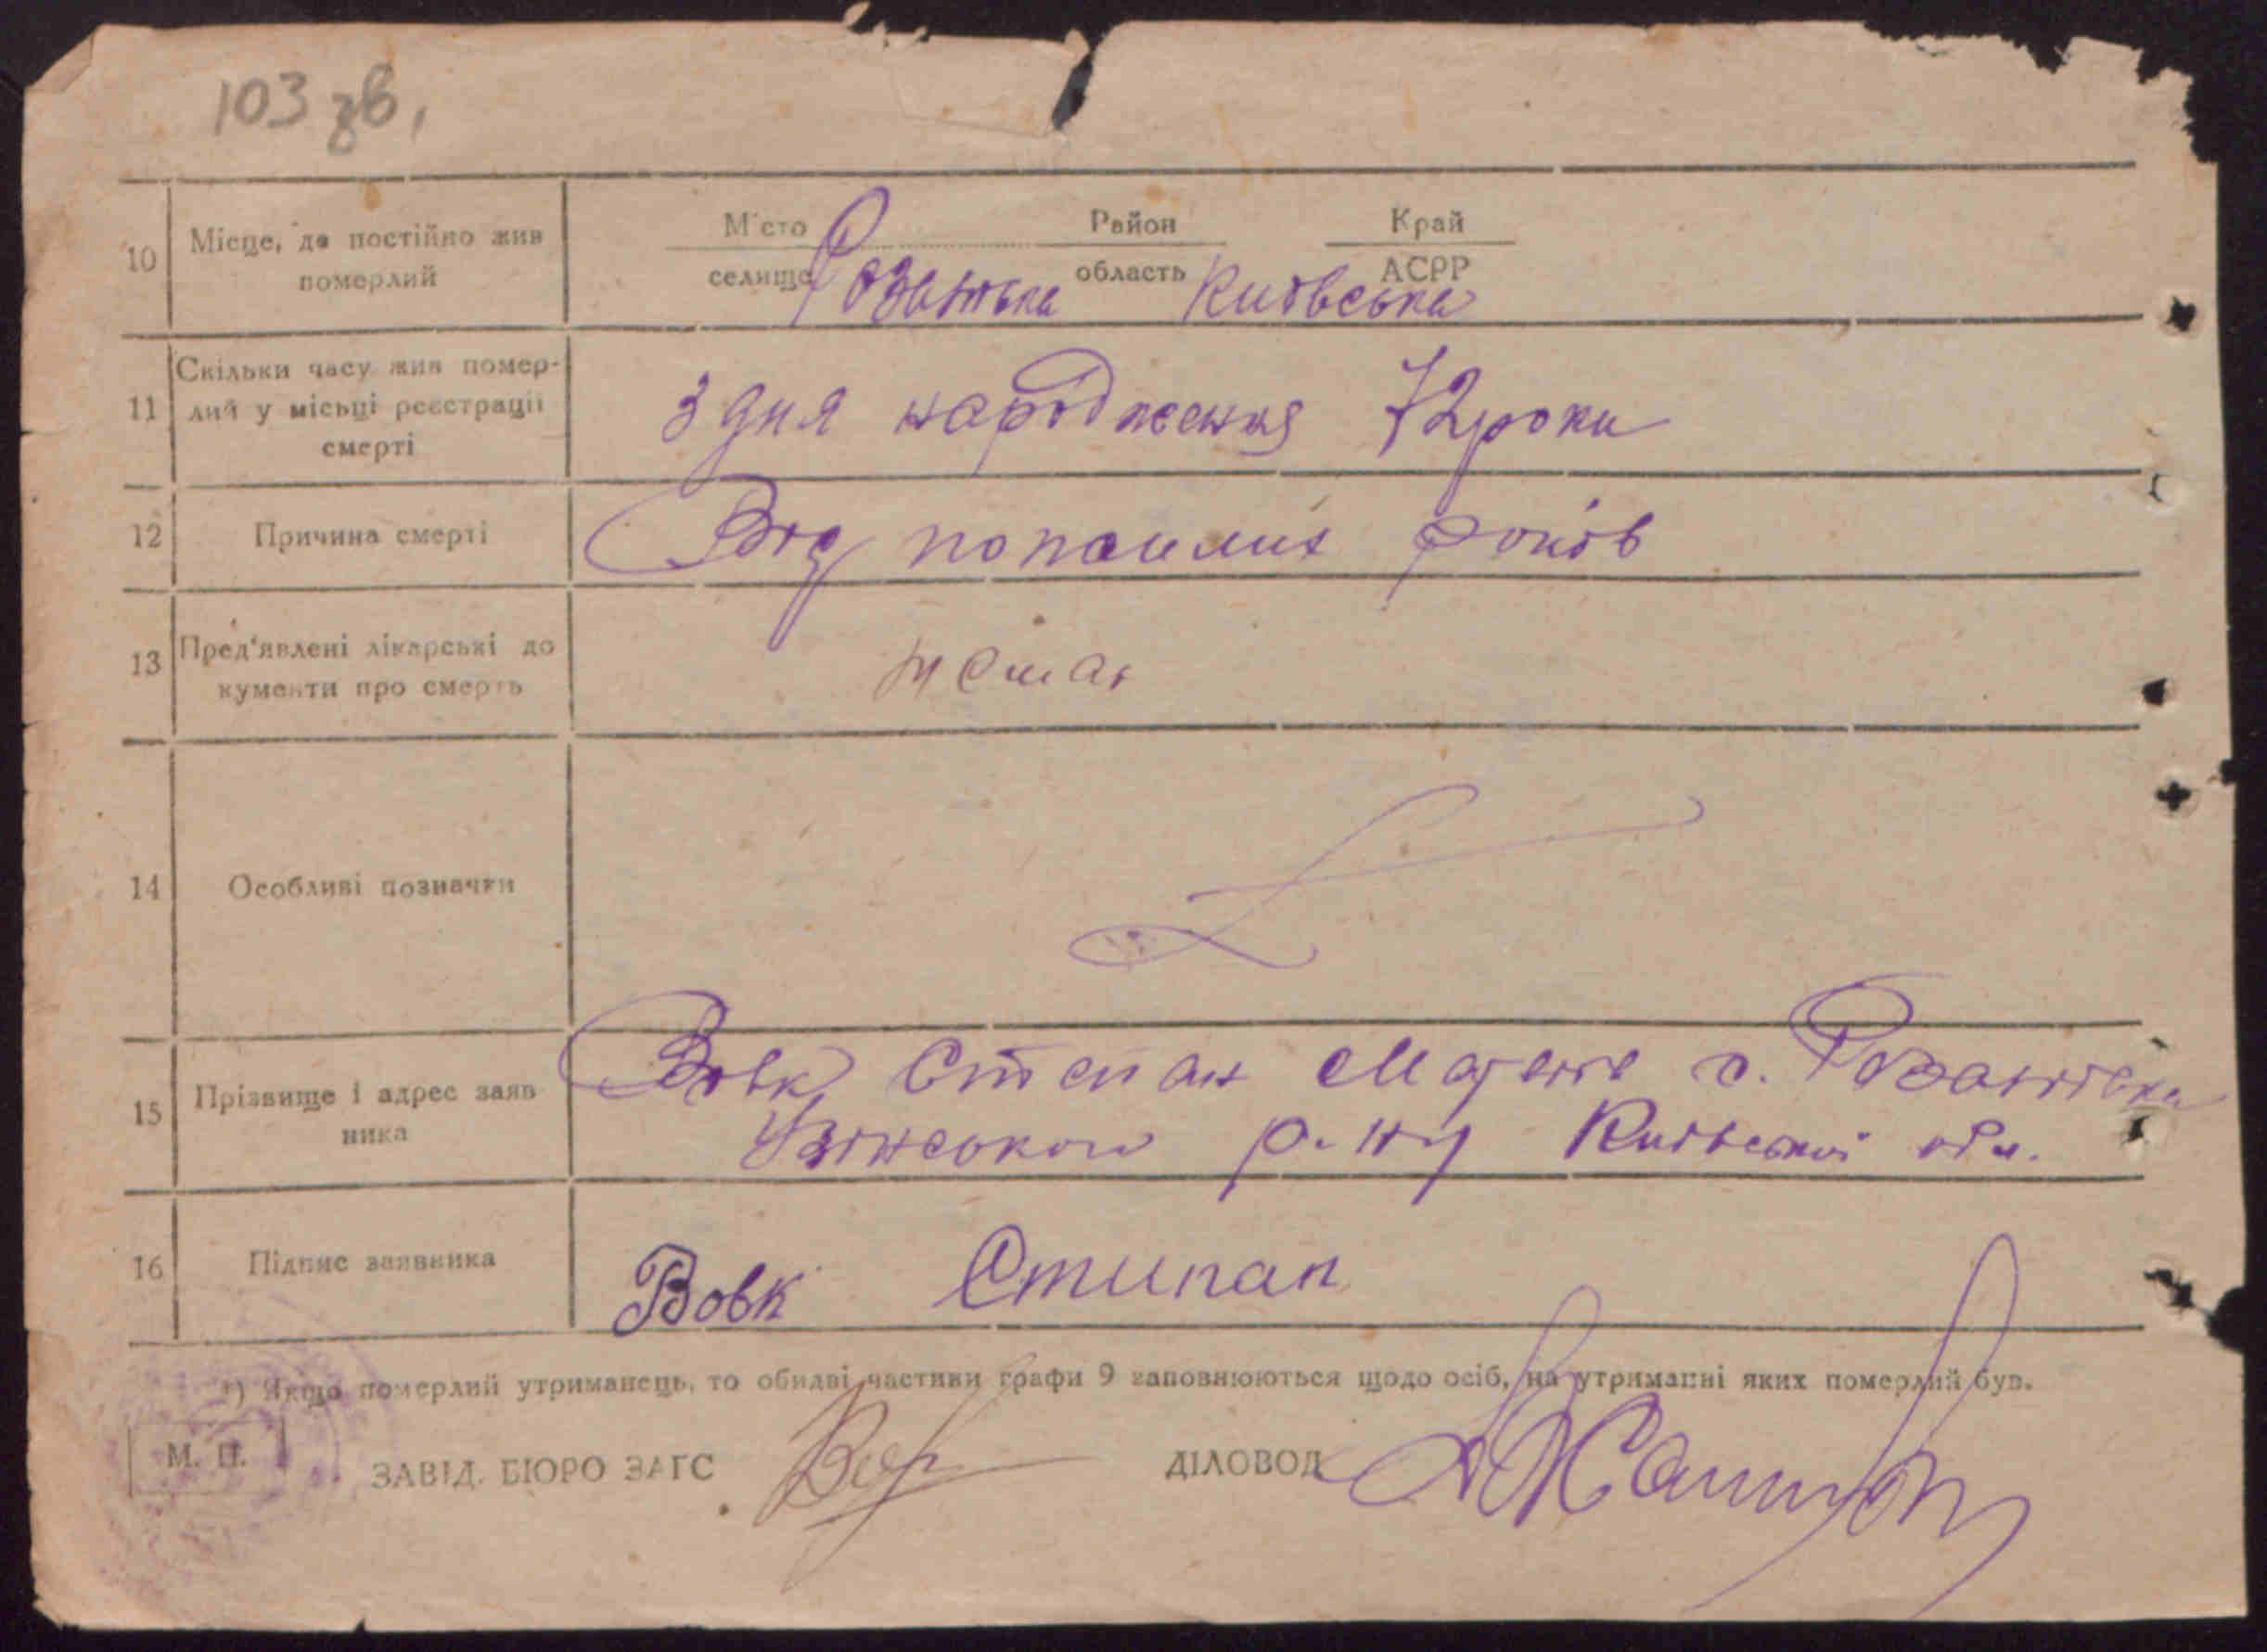 103 зв.
10 Місце, де постійно жив померлий
М'сто Район Край
селище область АСРР
Розаліївка Київська
11 Скільки часу жив помер-
лий у місьці реєстрації
смерті
З дня народження 72 роки
12 Причина смерті
Від похилих років
13 Пред'явлені лікарські до
кументи про смерть
немає
14 Особливі позначки
15 Прізвище і адрес заяв
ника
Вовк Степан с.
Узінського р-ну Київської обл.
16 Підпис заявника
Вовк Стипан
*) Якщо померлий утриманець, то обидві частини графи 9 заповнюються щодо осіб, на утриманні яких померлий був.
М. П.
ЗАВІД. БЮРО ЗАГС ДІЛОВОД